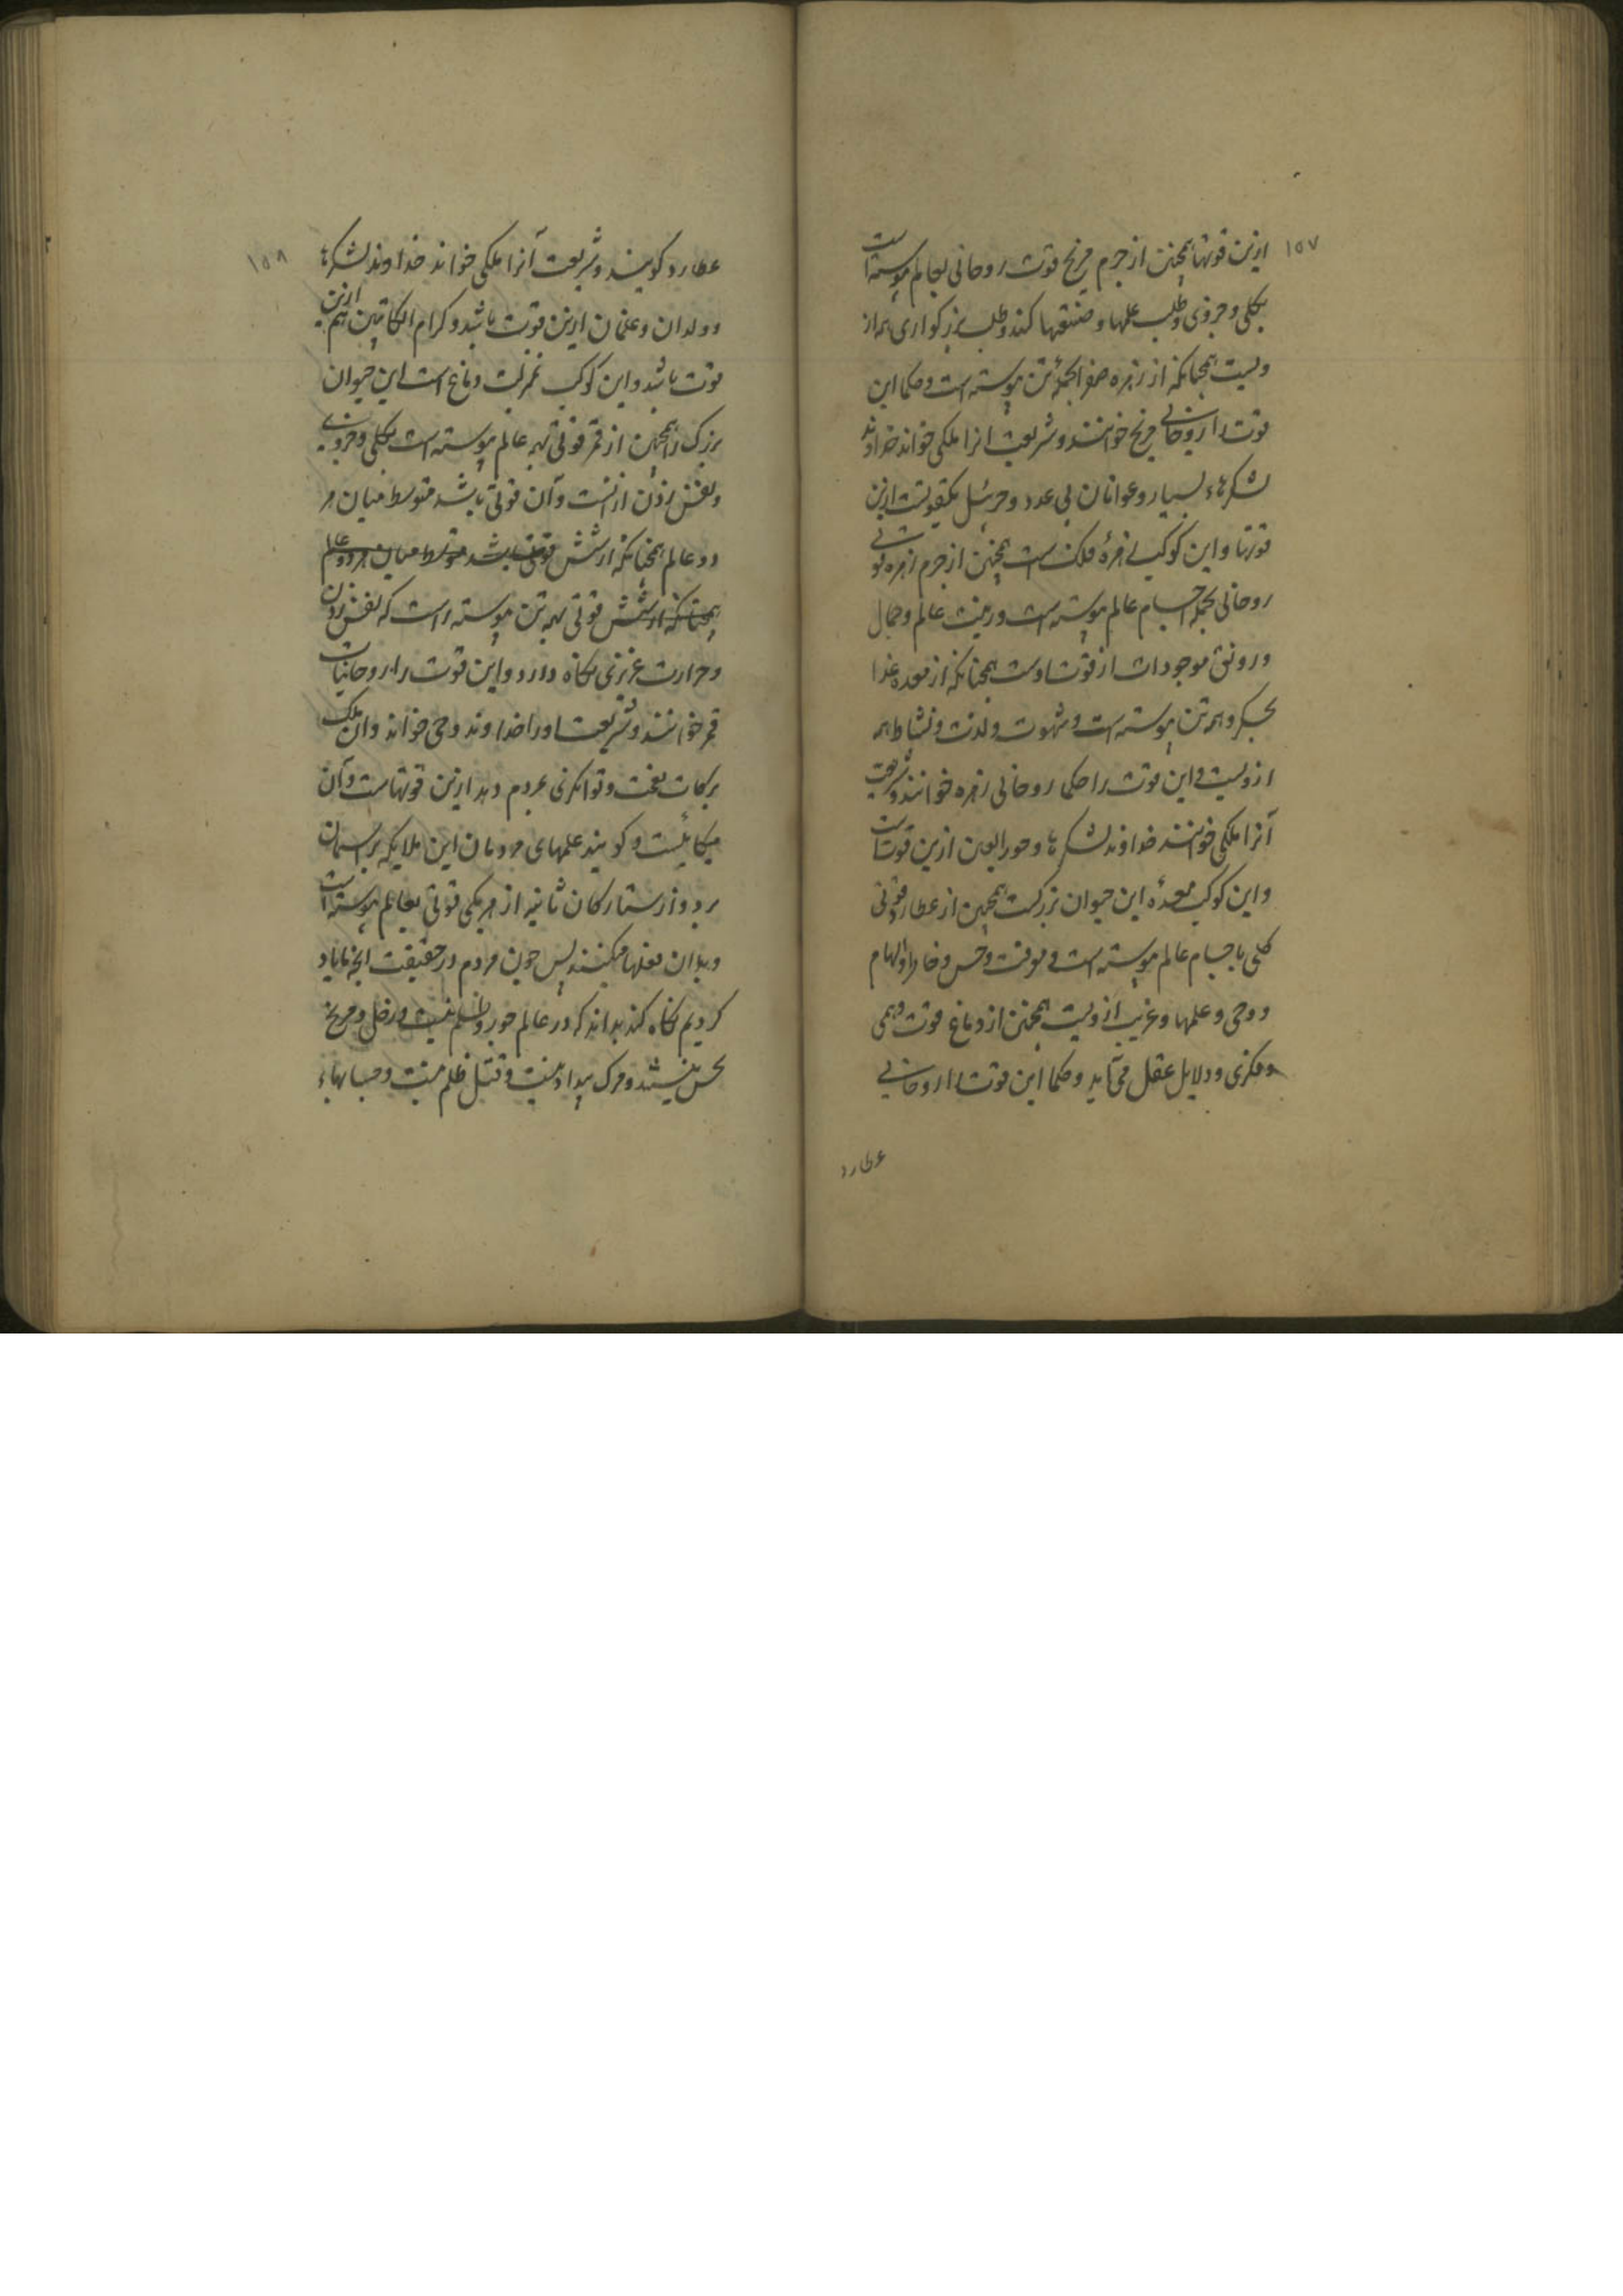 ١٥٧
ازین قوتها همچنین از جرم مریخ قوت روحانی بعالم پیوسته است
بکلی و جزوی و طلب علمها و صنعتها کند و طلب بزرکواری همه از
ویست همچنانکه از زهره صفرا بجمله تن پیوسته است و حکما این
قوت را روحانی مریخ خوانند و شریعت انرا ملکی خواند خداوند
لشکرهاء بسیار و عوانان بی عدد و جبرئیل یکقوتست ازین
قوتها و این کوکب زهرهٔ فلکست همچنین از جرم زهره قوتی
روحانی بجمله اجسام عالم پیوسته است و زینت عالم و جمال
و رونق موجودات از قوت اوست همچنانکه از معده غذا
بجکر و همه تن پیوسته است و شهوت و لذت و نشاط همه
ازویست و این قوت را حکما روحانی زهره خوانند و شریعت
آنرا ملکی خوانند خداوند لشکرها و حور العین ازین قوتست
و این کوکب معدهٔ این حیوان بزرکست همچنین از عطارد قوتی
کلی باجسام عالم پیوسته است و معرفت و حس و خاطر و الهام
و وحی و علمها و غریب ازویست همچنین از دماغ قوت وهمی
و فکری و دلایل عقل می آید و حکما این قوت را روحانی
عطارد
١٥٨
عطارد کویند و شریعت آنرا ملکی خواند خداوند لشکرها
و ولدان و غلمان ازین قوت باشد و کرام الکاتبین هم ازین
قوت باشد و این کوکب بمنزلت دماغ است این حیوان
بزرک را همچنین از قمر قوتی بهمه عالم پیوسته است بکلی و جزوی
و نفس زدن ازنست و آن قوتی باشد متوسط میان هر
دو عالم همچنانکه از شش قوتی باشد متوسط میان هر دو عالم
همچنانکه از شش قوتی بهمه تن پیوسته است که نفس زدن
و حرارت غریزی نکاه دارد و این قوت را روحانیات
قمر خوانند و شریعت او را خداوند وحی خواند و ان ملک
برکات نعمت و توانکری بمردم دهد ازین قوتهاست و آن
میکائیلست و کویند علمهای مردمان این ملایکه بر اسمان
برد و از ستارکان ثانیه از هر یکی قوتی بعالم پیوسته است
و بدان فعلها میکنند پس چون مردم در حقیقت انچه ما یاد
کردیم نکاه کند بداند که در عالم جور و ظلم نیست و زحل و مریخ
نحس نیستند و مرک بیداد نیست و قتل ظلم نیست و حسابهاء